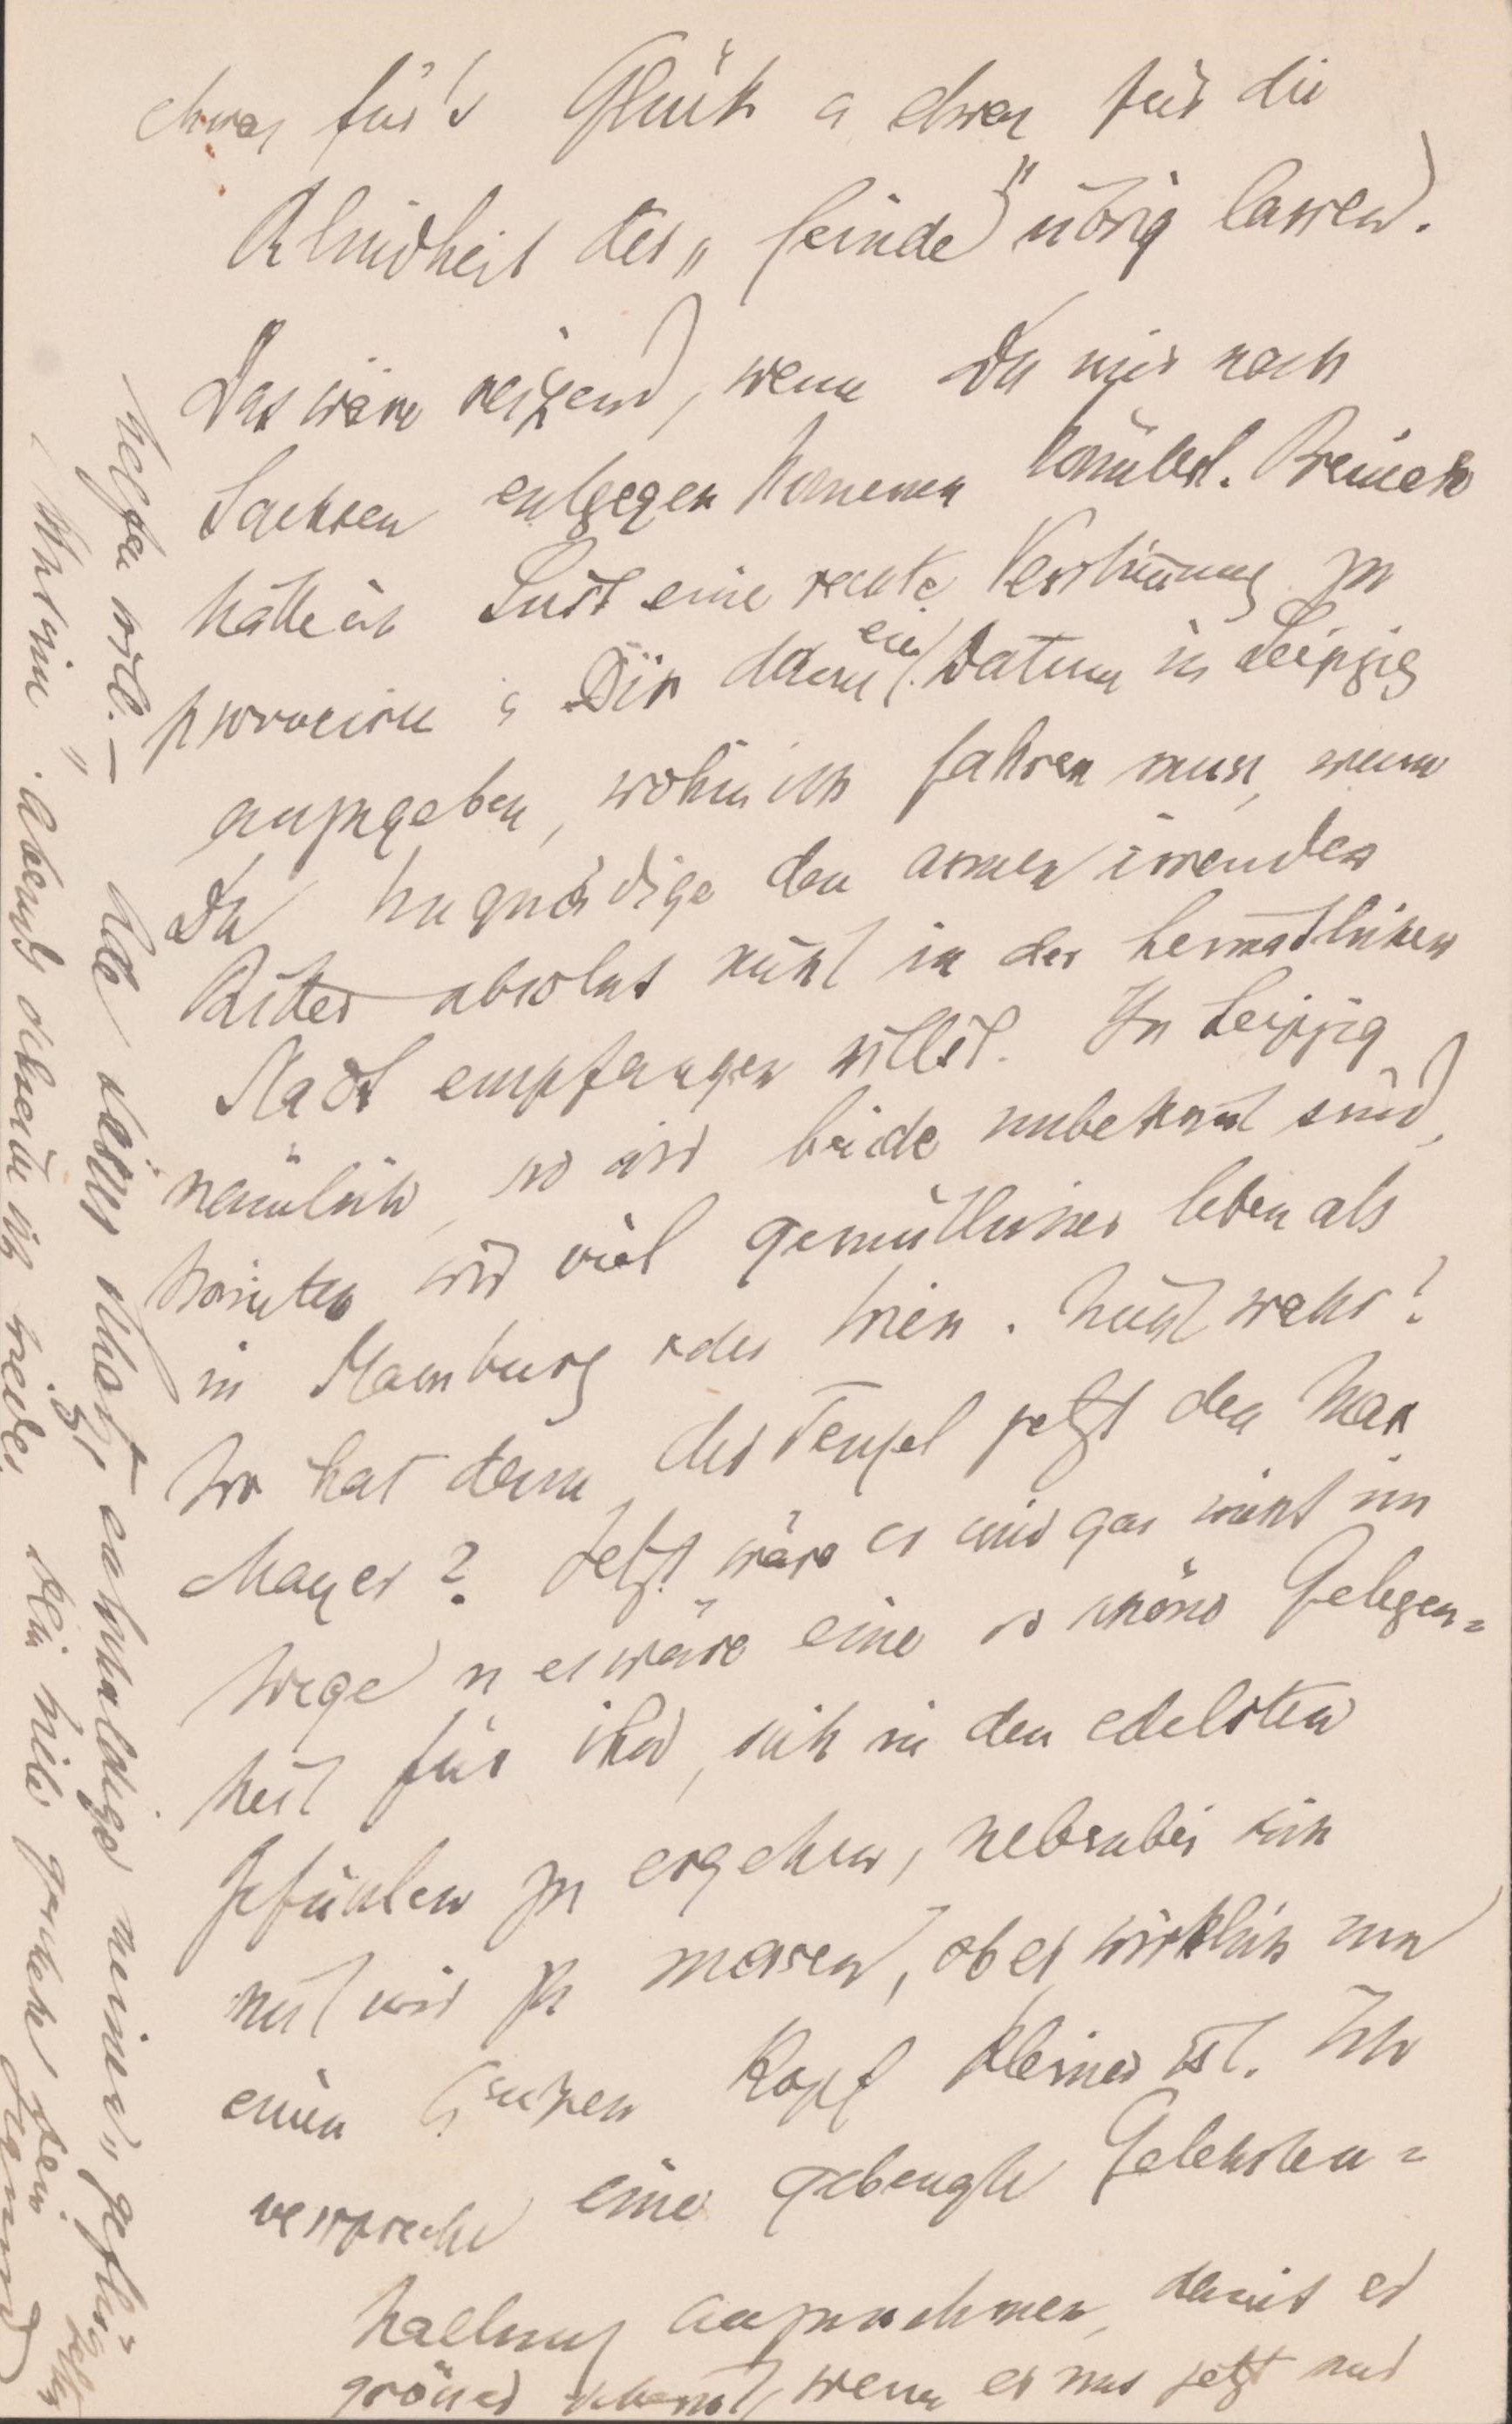 etwas für's Glück u etwas für die
Blindheit der „Feinde“ übrig lassen.
Das wäre reizend, wenn Du mir nach
Sachsen entgegen kommen könntest. Beinah
hätte ich Lust eine rechte Verstimmung zu
provociren u Dir dann ein Datum in Leipzig
anzugeben, wohin ich fahren muss, wenn
Du Ungnädige den armen irrenden
Ritter absolut nicht in der heimatlichen
Stadt empfangen willst. In Leipzig
nämlich, wo wir beide unbekannt sind,
könnten wir viel gemütlicher leben als
in Hamburg oder Wien. Nicht wahr?
Wo hat denn der Teufel jetzt den Max
Mayer? Jetzt wäre er mir gar nicht im
Wege u es wäre eine so schöne Gelegen=
heit für ihn, sich in den edelsten
Gefühlen zu ergehen, nebenbei sich
mit mir zu messen, ob er wirklich um
einen ganzen Kopf kleiner ist. Ich
verspreche eine gebeugte Gelehrten=
haltung anzunehmen, damit er
grösser scheint, wenn er uns jetzt nur
helfen will. —